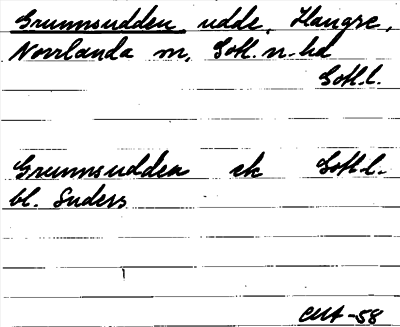 Grunnsudden udde, Hangre,
Norrlanda sn, Gotl. n. hd
Gotl. l.
Grunnsudden ek Gotl. l.
bl. Suders
CMA-58